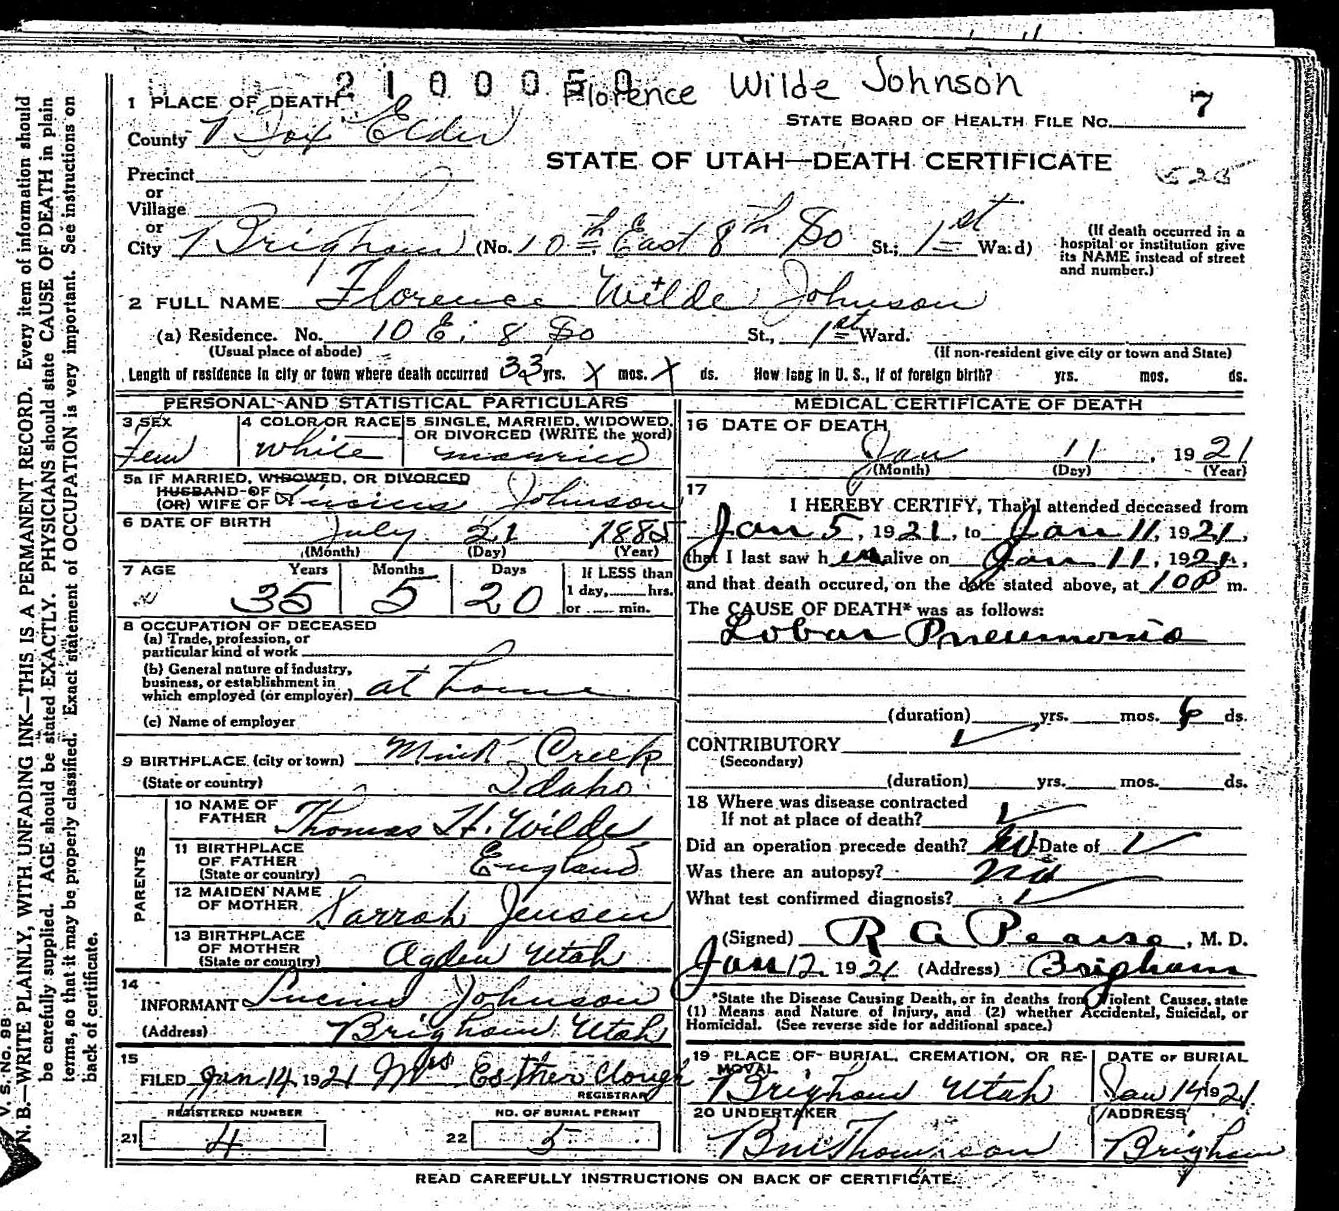 2100050 Florence Wilde Johnson
1 PLACE OF DEATH
County Box Elder
STATE BOARD OF HEALTH FILE NO. 7
STATE OF UTAH—DEATH CERTIFICATE
525
Precinct
or
Village
or
City Brigham (No. 10th East 8th So St.; 1st Ward)
(If death occurred in a
hospital or institution give
its NAME instead of street
and number.)
2 FULL NAME Florence Wilde Johnson
(a) Residence. No. 10 E. 8 So St., 1st Ward.
(Usual place of abode) (If non-resident give city or town and State)
Length of residence in city or town where death occurred 33 yrs. X mos. X ds. How long in U. S., if of foreign birth? yrs. mos. ds.
PERSONAL AND STATISTICAL PARTICULARS
3 SEX
Fem
4 COLOR OR RACE
white
5 SINGLE, MARRIED, WIDOWED,
OR DIVORCED (WRITE the word)
married
5a IF MARRIED, WIDOWED, OR DIVORCED
HUSBAND OF
(OR) WIFE OF Lucius Johnson
6 DATE OF BIRTH July 21 1885
(Month) (Day) (Year)
7 AGE Years Months Days If LESS than
1 day, hrs.
35 5 20 or min.
8 OCCUPATION OF DECEASED
(a) Trade, profession, or
particular kind of work
(b) General nature of industry,
business, or establishment in
which employed (or employer) at home
(c) Name of employer
9 BIRTHPLACE (city or town) Mink Creek
(State or country) Idaho
PARENTS
10 NAME OF
FATHER Thomas H. Wilde
11 BIRTHPLACE
OF FATHER
(State or country) England
12 MAIDEN NAME
OF MOTHER Sarrah Jensen
13 BIRTHPLACE
OF MOTHER
(State or country) Ogden Utah
14
INFORMANT Lucius Johnson
(Address) Brigham Utah
15
FILED Jan 14, 1921 Mrs Esther Clough
REGISTRAR
REGISTERED NUMBER
21 4
NO. OF BURIAL PERMIT
22 5
MEDICAL CERTIFICATE OF DEATH
16 DATE OF DEATH
Jan 11, 1921
(Month) (Day) (Year)
17
I HEREBY CERTIFY, That I attended deceased from
Jan 5, 1921, to Jan 11, 1921,
that I last saw her alive on Jan 11, 1921,
and that death occured, on the date stated above, at 10 P m.
The CAUSE OF DEATH* was as follows:
Lobar Pneumonia
(duration) yrs. mos. 6 ds.
CONTRIBUTORY
(Secondary)
(duration) yrs. mos. ds.
18 Where was disease contracted
If not at place of death?
Did an operation precede death? No Date of
Was there an autopsy? No
What test confirmed diagnosis?
(Signed) R A Pearse, M. D.
Jan 12, 1921 (Address) Brigham
*State the Disease Causing Death, or in deaths from Violent Causes, state
(1) Means and Nature of Injury, and (2) whether Accidental, Suicidal, or
Homicidal. (See reverse side for additional space.)
19 PLACE OF BURIAL, CREMATION, OR RE-
MOVAL
Brigham Utah
DATE OF BURIAL
Jan 14 1921
20 UNDERTAKER
B M Thomson
ADDRESS
Brigham
READ CAREFULLY INSTRUCTIONS ON BACK OF CERTIFICATE.
V. S. No. 98
N. B.—WRITE PLAINLY, WITH UNFADING INK—THIS IS A PERMANENT RECORD. Every item of information should
be carefully supplied. AGE should be stated EXACTLY. PHYSICIANS should state CAUSE OF DEATH in plain
terms, so that it may be properly classified. Exact statement of OCCUPATION is very important. See instructions on
back of certificate.